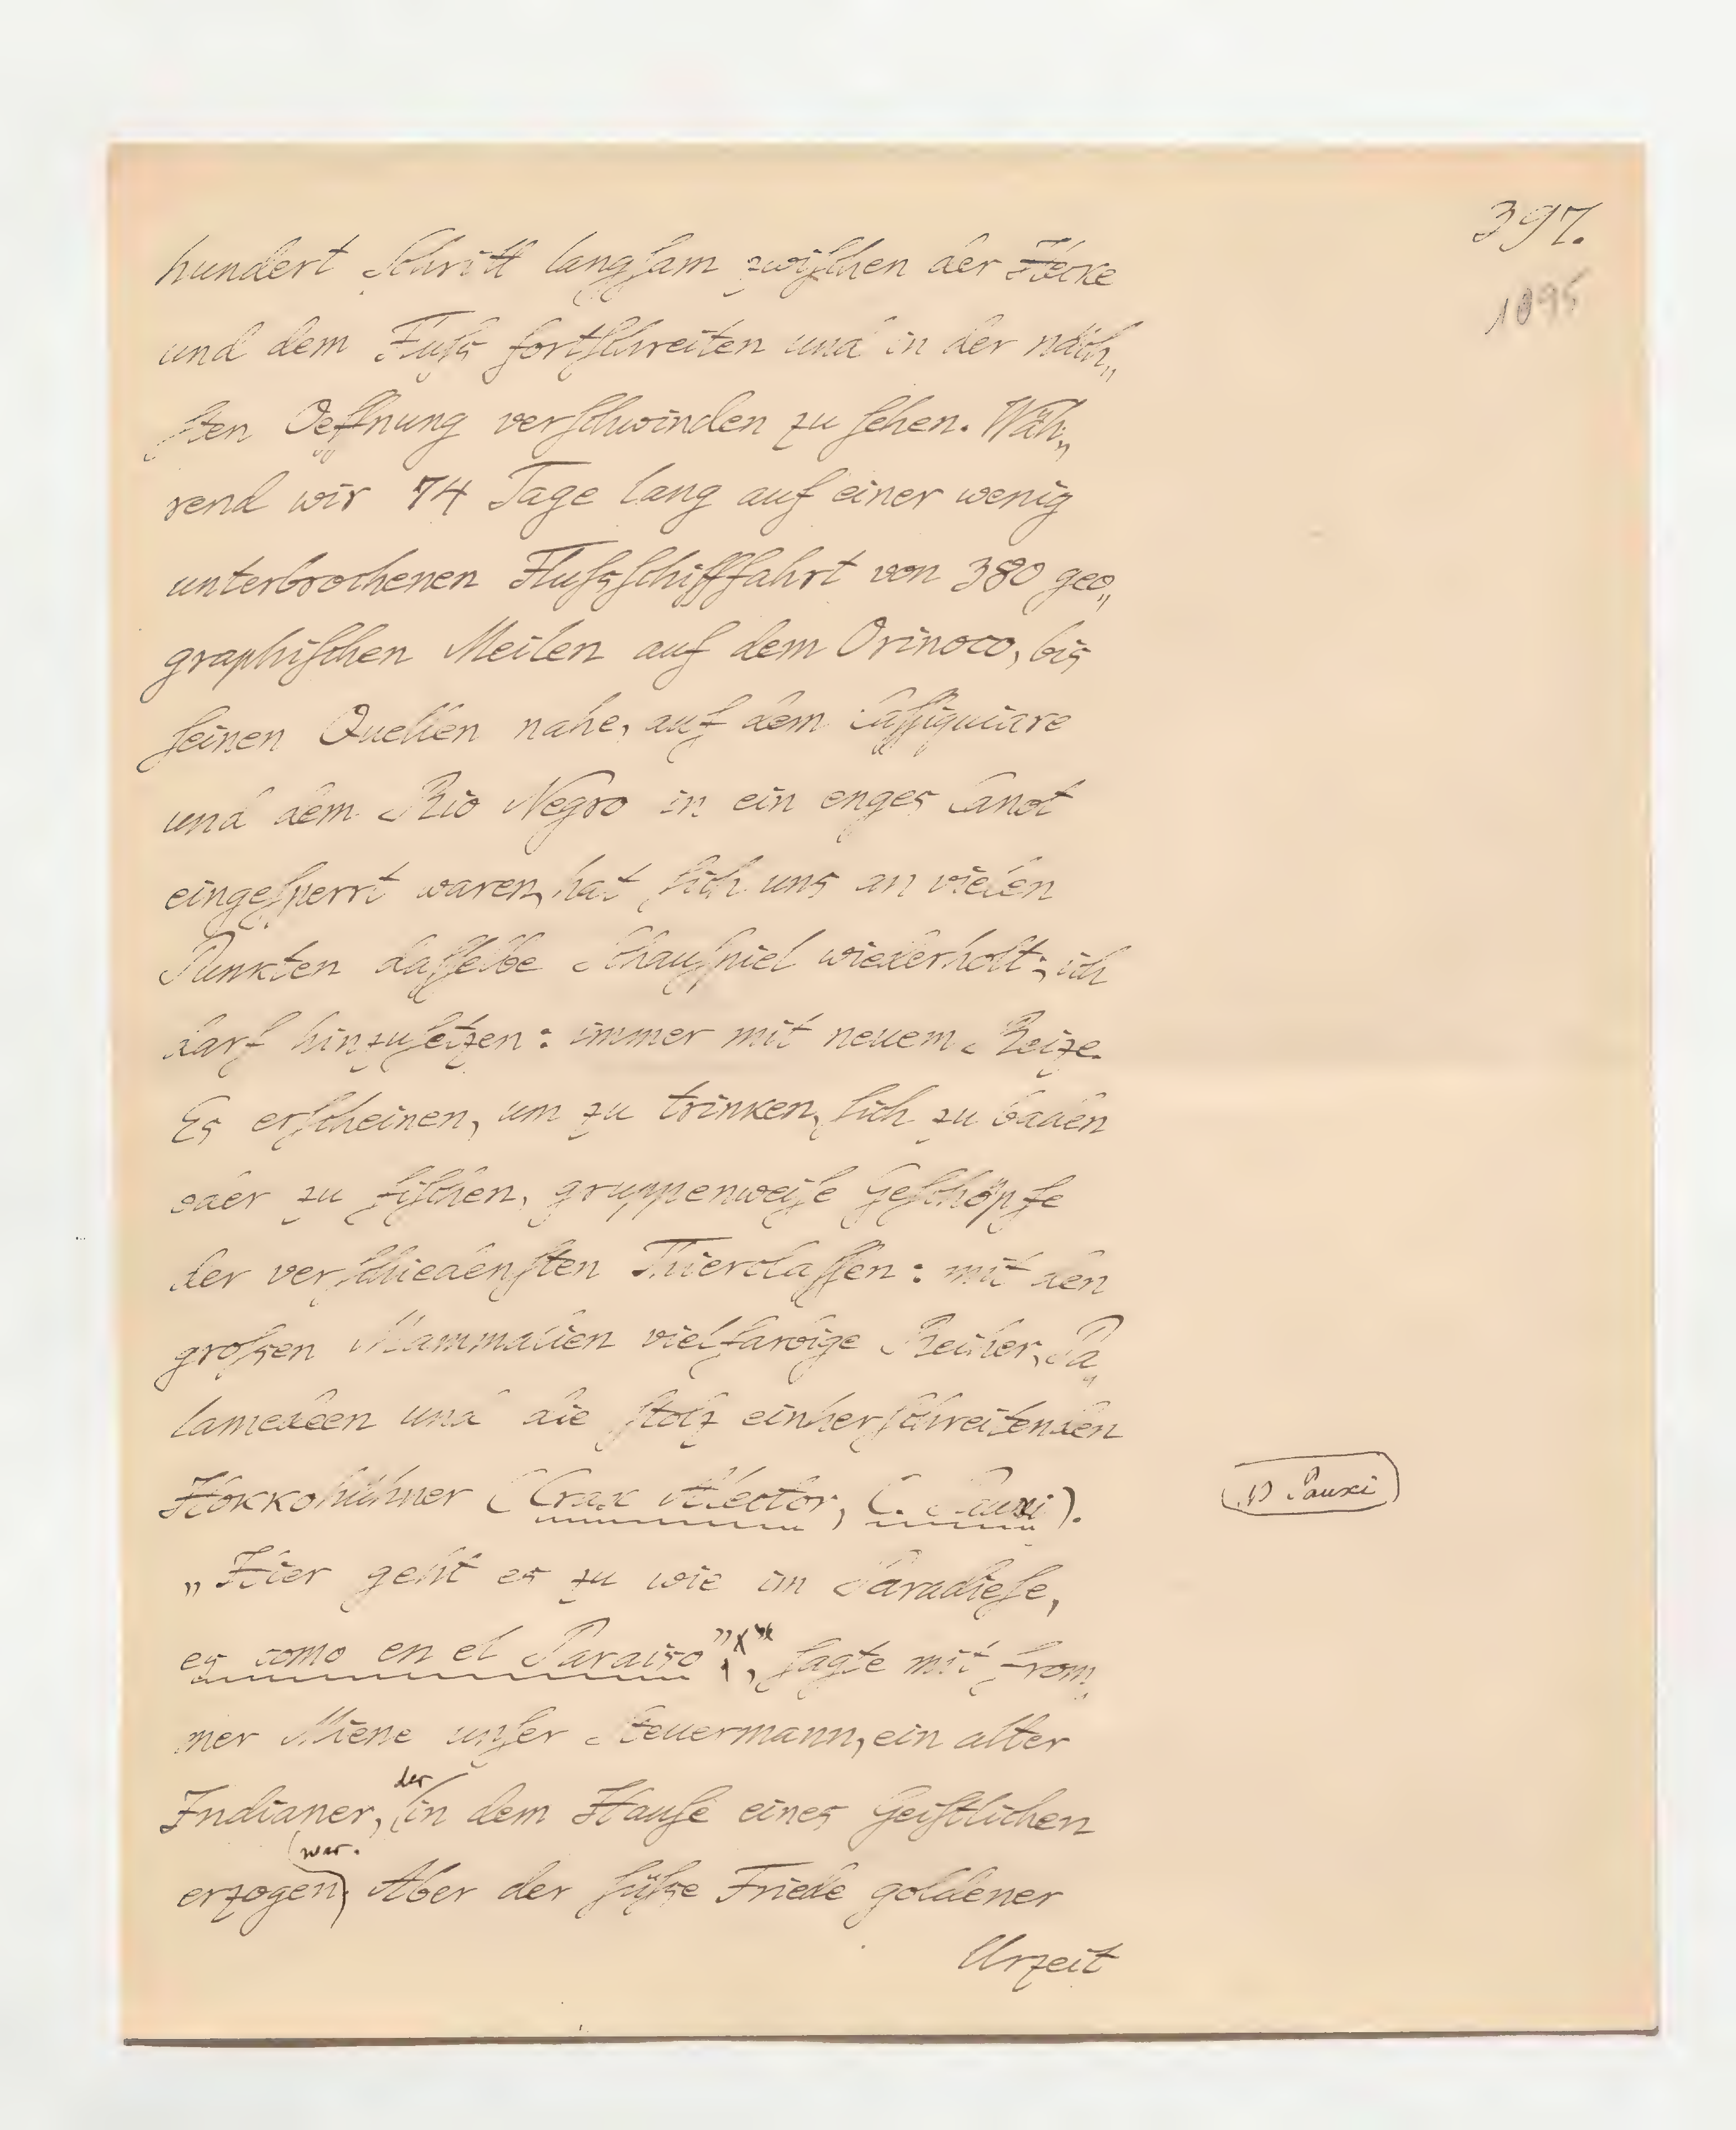 397.
1095
hundert Schritt langſam zwiſchen der Hecke
und dem Fluſs fortſchreiten und in der näch„
ſten Oeffnung verſchwinden zu ſehen. Wäh„
rend wir 74 Tage lang auf einer wenig
unterbrochenen Fluſsſchifffahrt von 380 geo„
graphiſchen Meilen auf dem Orinoco, bis
ſeinen Quellen nahe, auf dem Caſſiquiare
und dem Rio Negro in ein enges Canot
eingeſperrt waren, hat ſich uns an vielen
Punkten daſſelbe Schauſpiel wiederholt; ich
darf hinzuſetzen: immer mit neuem Reize.
Es erſcheinen, um zu trinken, ſich zu baden
oder zu fiſchen, gruppenweiſe Geſchöpfe
der verſchiedenſten Thierclaſſen: mit den
groſsen Mammalien vielfarbige Reiher, Pa„
lamedeen und die ſtolz einherſchreitenden
Hokkohühner (Crax Alector, C. Pauxi).
Pauxi
„Hier geht es zu wie im Paradieſe,
es como en el Paraiso”, ſagte mit from„
mer Miene unſer Steuermann, ein alter
der
Indianer, in dem Hauſe eines Geiſtlichen
war.
erzogen. Aber der ſüſse Friede goldener
Urzeit